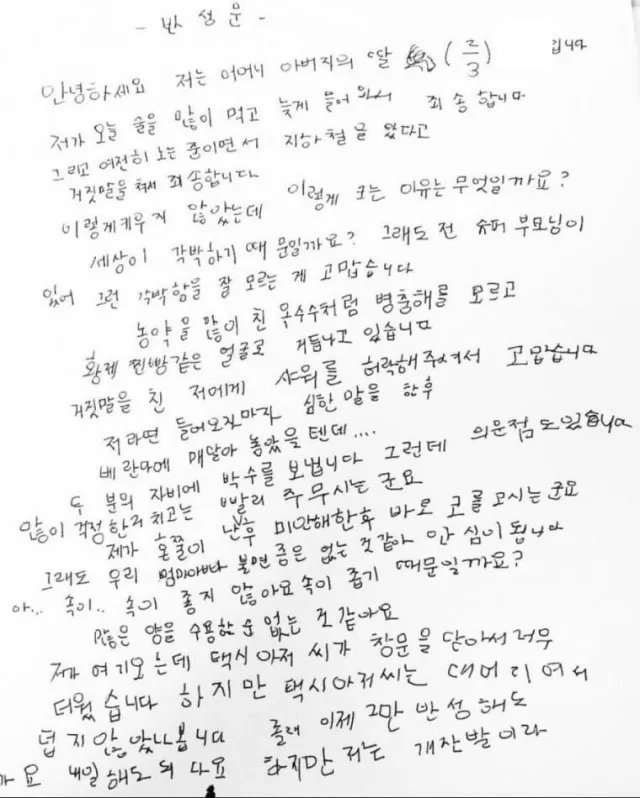 - 반성문 -
안녕하세요 저는 어머니 아버지의 딸 (2/3) 입니다
저가 오늘 술을 많이 먹고 늦게 들어와서 죄송합니다
그리고 여전히 노는 중이면서 지하철을 왔다고
거짓말을 쳐서 죄송합니다
이렇게 키우지 않았는데 이렇게 크는 이유는 무엇일까요?
세상이 각박하기 때문일까요? 그래도 전 슈퍼 부모님이
있어 그런 각박함을 잘 모르는 게 고맙습니다
농약을 많이 친 옥수수처럼 병충해를 모르고
황제 찐빵같은 얼굴로 거듭나고 있습니다
거짓말을 친 저에게 샤워를 허락해주셔서 고맙습니다
저라면 들어오자마자 심한 말을 한 후
베란다에 매달아 놓았을 텐데....
두 분의 자비에 박수를 보냅니다 그런데 의문점도 있습니다
많이 걱정한거 치고는 빨리 주무시는 군요
제가 혼쭐이 난후 미안해한후 바로 코를 고시는 군요
그래도 우리 엄마아빠 불면증은 없는 것 같아 안심이 됩니다
아... 속이.. 속이 좋지 않아요 속이 좁기 때문일까요?
많은 양을 수용할 순 없는 것 같아요
제가 여기오는데 택시아저씨가 창문을 닫아서 너무
더웠습니다 하지만 택시아저씨는 대머리여서
덥지 않았나봅니다 몰래 이제 그만 반성해도
까요 내일해도 되나요 하지만 저는 개잔발이라